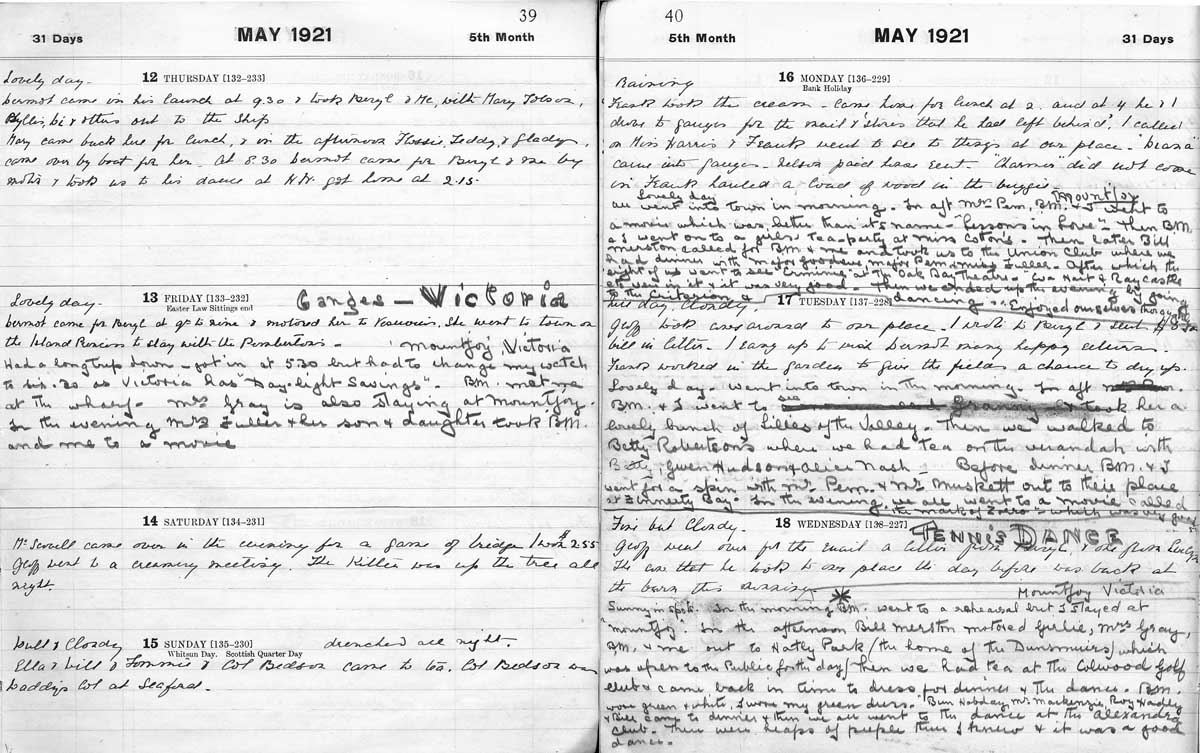 39
31 Days
MAY 1921
5th Month
12 THURSDAY [132-233]
Lovely day -
Dermot came in his launch at 9.30 & took Beryl & Me, with Mary
Phyllis, & others out to the Ship
Mary came back here for lunch, & in the afternoon Flossie, Teddy, & Gladys
came over by boat for her. At 8.30 Dermot came for Beryl & me by
motor & took us to his dance at H.H. got home at 2.15.
13 FRIDAY [133-232]
Easter Law Sittings end
Ganges - Victoria
Lovely day -
Dermot came for Beryl at to nine & motored her to Vesuvius, She went to town on
the Island Princess to stay with the Pembertons -
Mountjoy, Victoria
Had a long trip down - got in at 5.30 but had to change my watch
to six.30 as Victoria has "Day-light Savings". B.M. met me
at the wharf - Mrs Gray is also staying at Mountjoy.
In the evening Mrs Fuller & her son & daughter took B.M.
and me to a movie
14 SATURDAY [134-231]
Mr Scovell came over in the evening for a game of bridge I won $2.55
Geoff went to a creamery meeting. The Kitten was up the tree all
night.
15 SUNDAY [135-230]
Whitsun Day. Scottish Quarter Day
Dull & Cloudy drenched all night
Ella & Bill & Tommie & Col Bedson came to tea. Col Bedson was
Daddys Col at Seaford.
40
5th Month
MAY 1921
31 Days
16 MONDAY [136-229]
Bank Holiday
Raining
Frank took the cream - came home for lunch at 2. and at 4 he & I
drove to ganges for the mail & 'stores that he had left behind'. I called
on Miss Harris & Frank went to see to things at our place -
came into ganges - Nelson paid rent - "Charmer" did not come
in Frank hauled a load of wood in the buggie -
Lovely day Mountjoy
all went into town in morning. In aft Mrs Pem, B.M. & I went to
a movie which was better than it's name - "Lessons in Love" - Then B.M.
& I went on to a girls tea-party at Miss Coton's - Then later Bill
Merston called for B.M. & me and took us to the Union Club where we
had dinner with Major Goodeve, Major Pem & Miss Fuller - After which the
eight of us went to see "Criminal" at The Oak Bay Theatre - Eva Hart & Ray Castle
etc were in it & it was very good - Then we ended up the evening by going
to the Criterion & dancing. Enjoyed ourselves thoroughly
17 TUESDAY [137-228]
day, Cloudy,
Geoff took cows around to our place. I wrote to Beryl & sent $8
bill in letter. I rang up to wish Dermot many happy returns.
Frank worked in the garden to give the fields a chance to dry up.
Lovely day. Went into town in the morning. In aft
B.M. & I went to see Granny & took her a
lovely bunch of Lilies of the Valley. Then we walked to
Betty Robertson's where we had tea on the verandah with
Betty, Gwen Hudson & Alice Nash - Before dinner B.M. & I
went for a spin with Mr Pem. & Mr Muskett out to their place
at Finnerty Bay. In the evening we all went to a movie called
"the mark of Zorro" which was very good
18 WEDNESDAY [138-227]
TENNIS DANCE
Fine but Cloudy.
Geoff went over for the mail a letter from Beryl, & one from
The cow that he took to our place the day before was back at
the barn this evening
Mountjoy Victoria
Sunny in spots. In the morning B.M. went to a rehearsal but I stayed at
"Mountjoy". In the afternoon Bill Merston motored Girlie, Mrs Gray,
B.M. & me out to Hatley Park (the home of the Dunsmuirs) which
was open to the Public for the day) Then we had tea at the Colwood Golf
Club & came back in time to dress for dinner & the dance. B.M.
wore green & white, I wore my green dress. Ben Hobday, Mr Mackenzie, Roy Hadley
& Bill came to dinner & then we all went to the dance at the Alexandra
Club. There were heaps of people there I knew & it was a good
dance.